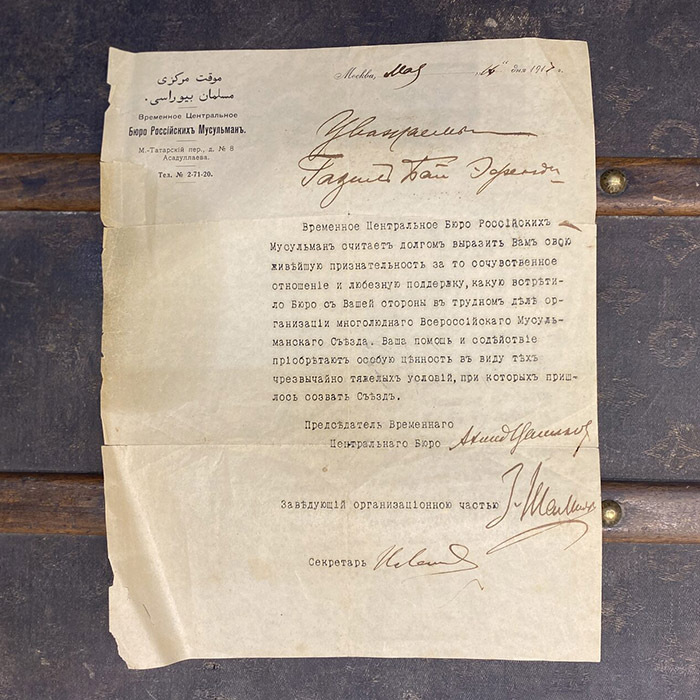 موقت مركزى
مسلمان بيوراسى.
Временное Центральное
Бюро Россiйскихъ Мусульманъ.
М.-Татарскiй пер., д. № 8
Асадуллаева.
Тел. № 2-71-20.
Москва, Май „16" дня 1917 г.
Уважаемый
Бай Эфенди
Временное Центральное Бюро Россiйскихъ
Мусульманъ считаетъ долгомъ выразить Вамъ свою
живѣйшую признательность за то сочувственное
отношенiе и любезную поддержку, какую встрѣти-
ло Бюро съ Вашей стороны въ трудномъ дѣлѣ ор-
ганизацiи многолюднаго Всероссiйскаго Мусуль-
манскаго Съѣзда. Ваша помощь и содѣйствiе
прiобрѣтаютъ особую цѣнность въ виду тѣхъ
чрезвычайно тяжелыхъ условiй, при которыхъ приш-
лось созвать Съѣздъ.
Предсѣдатель Временнаго
Центральнаго Бюро Ахмед Цаликов
Завѣдующiй организацiонною частью
Секретарь